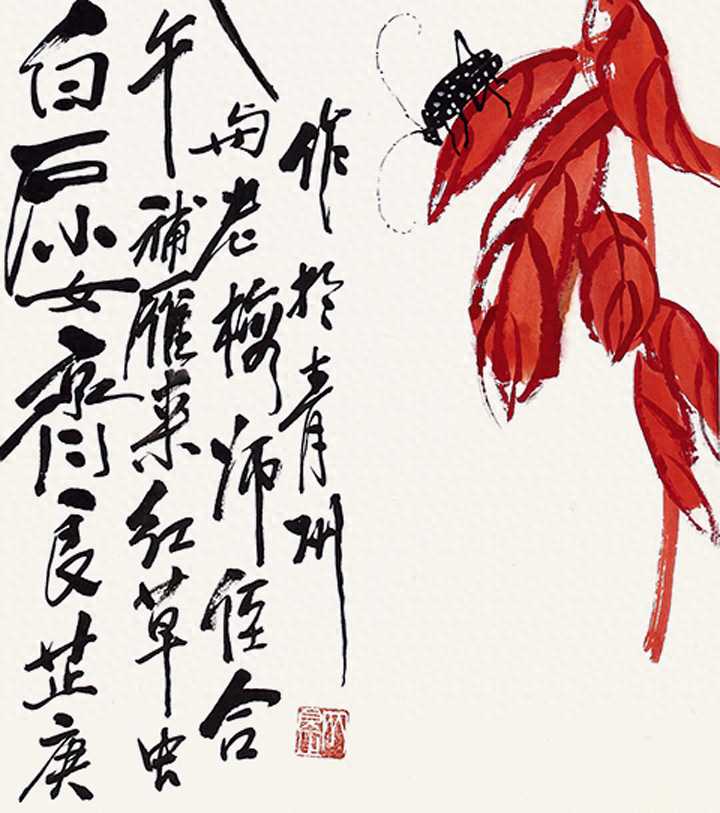 白石小女齊良芷庚
午補雁来红草虫
与老梅师侄合
作於青州